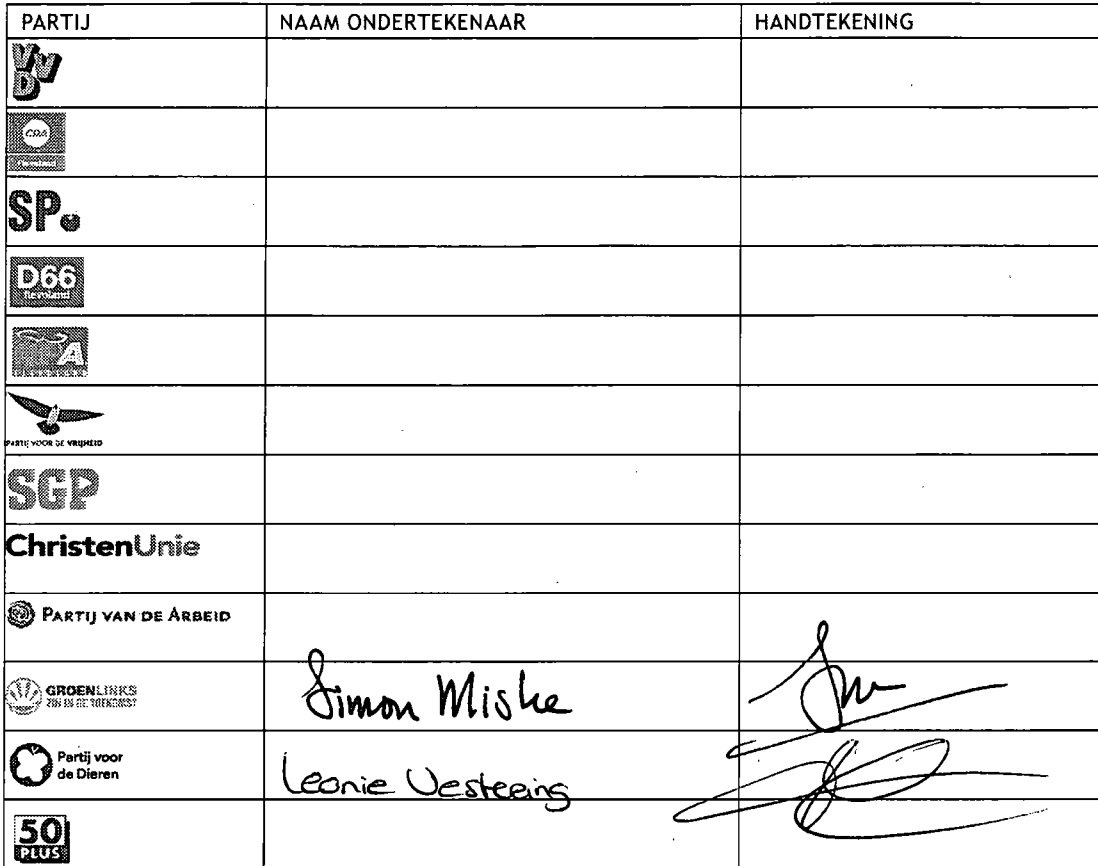 PARTIJ NAAM ONDERTEKENAAR HANDTEKENING
VVD
CDA
SP.
D66
Flevoland
A
PARTIJ VOOR DE VRIJHEID
SGP
ChristenUnie
PARTIJ VAN DE ARBEID
GROENLINKS Simon Miske
Partij voor
de Dieren
Leonie Vesteeing
50
PLUS